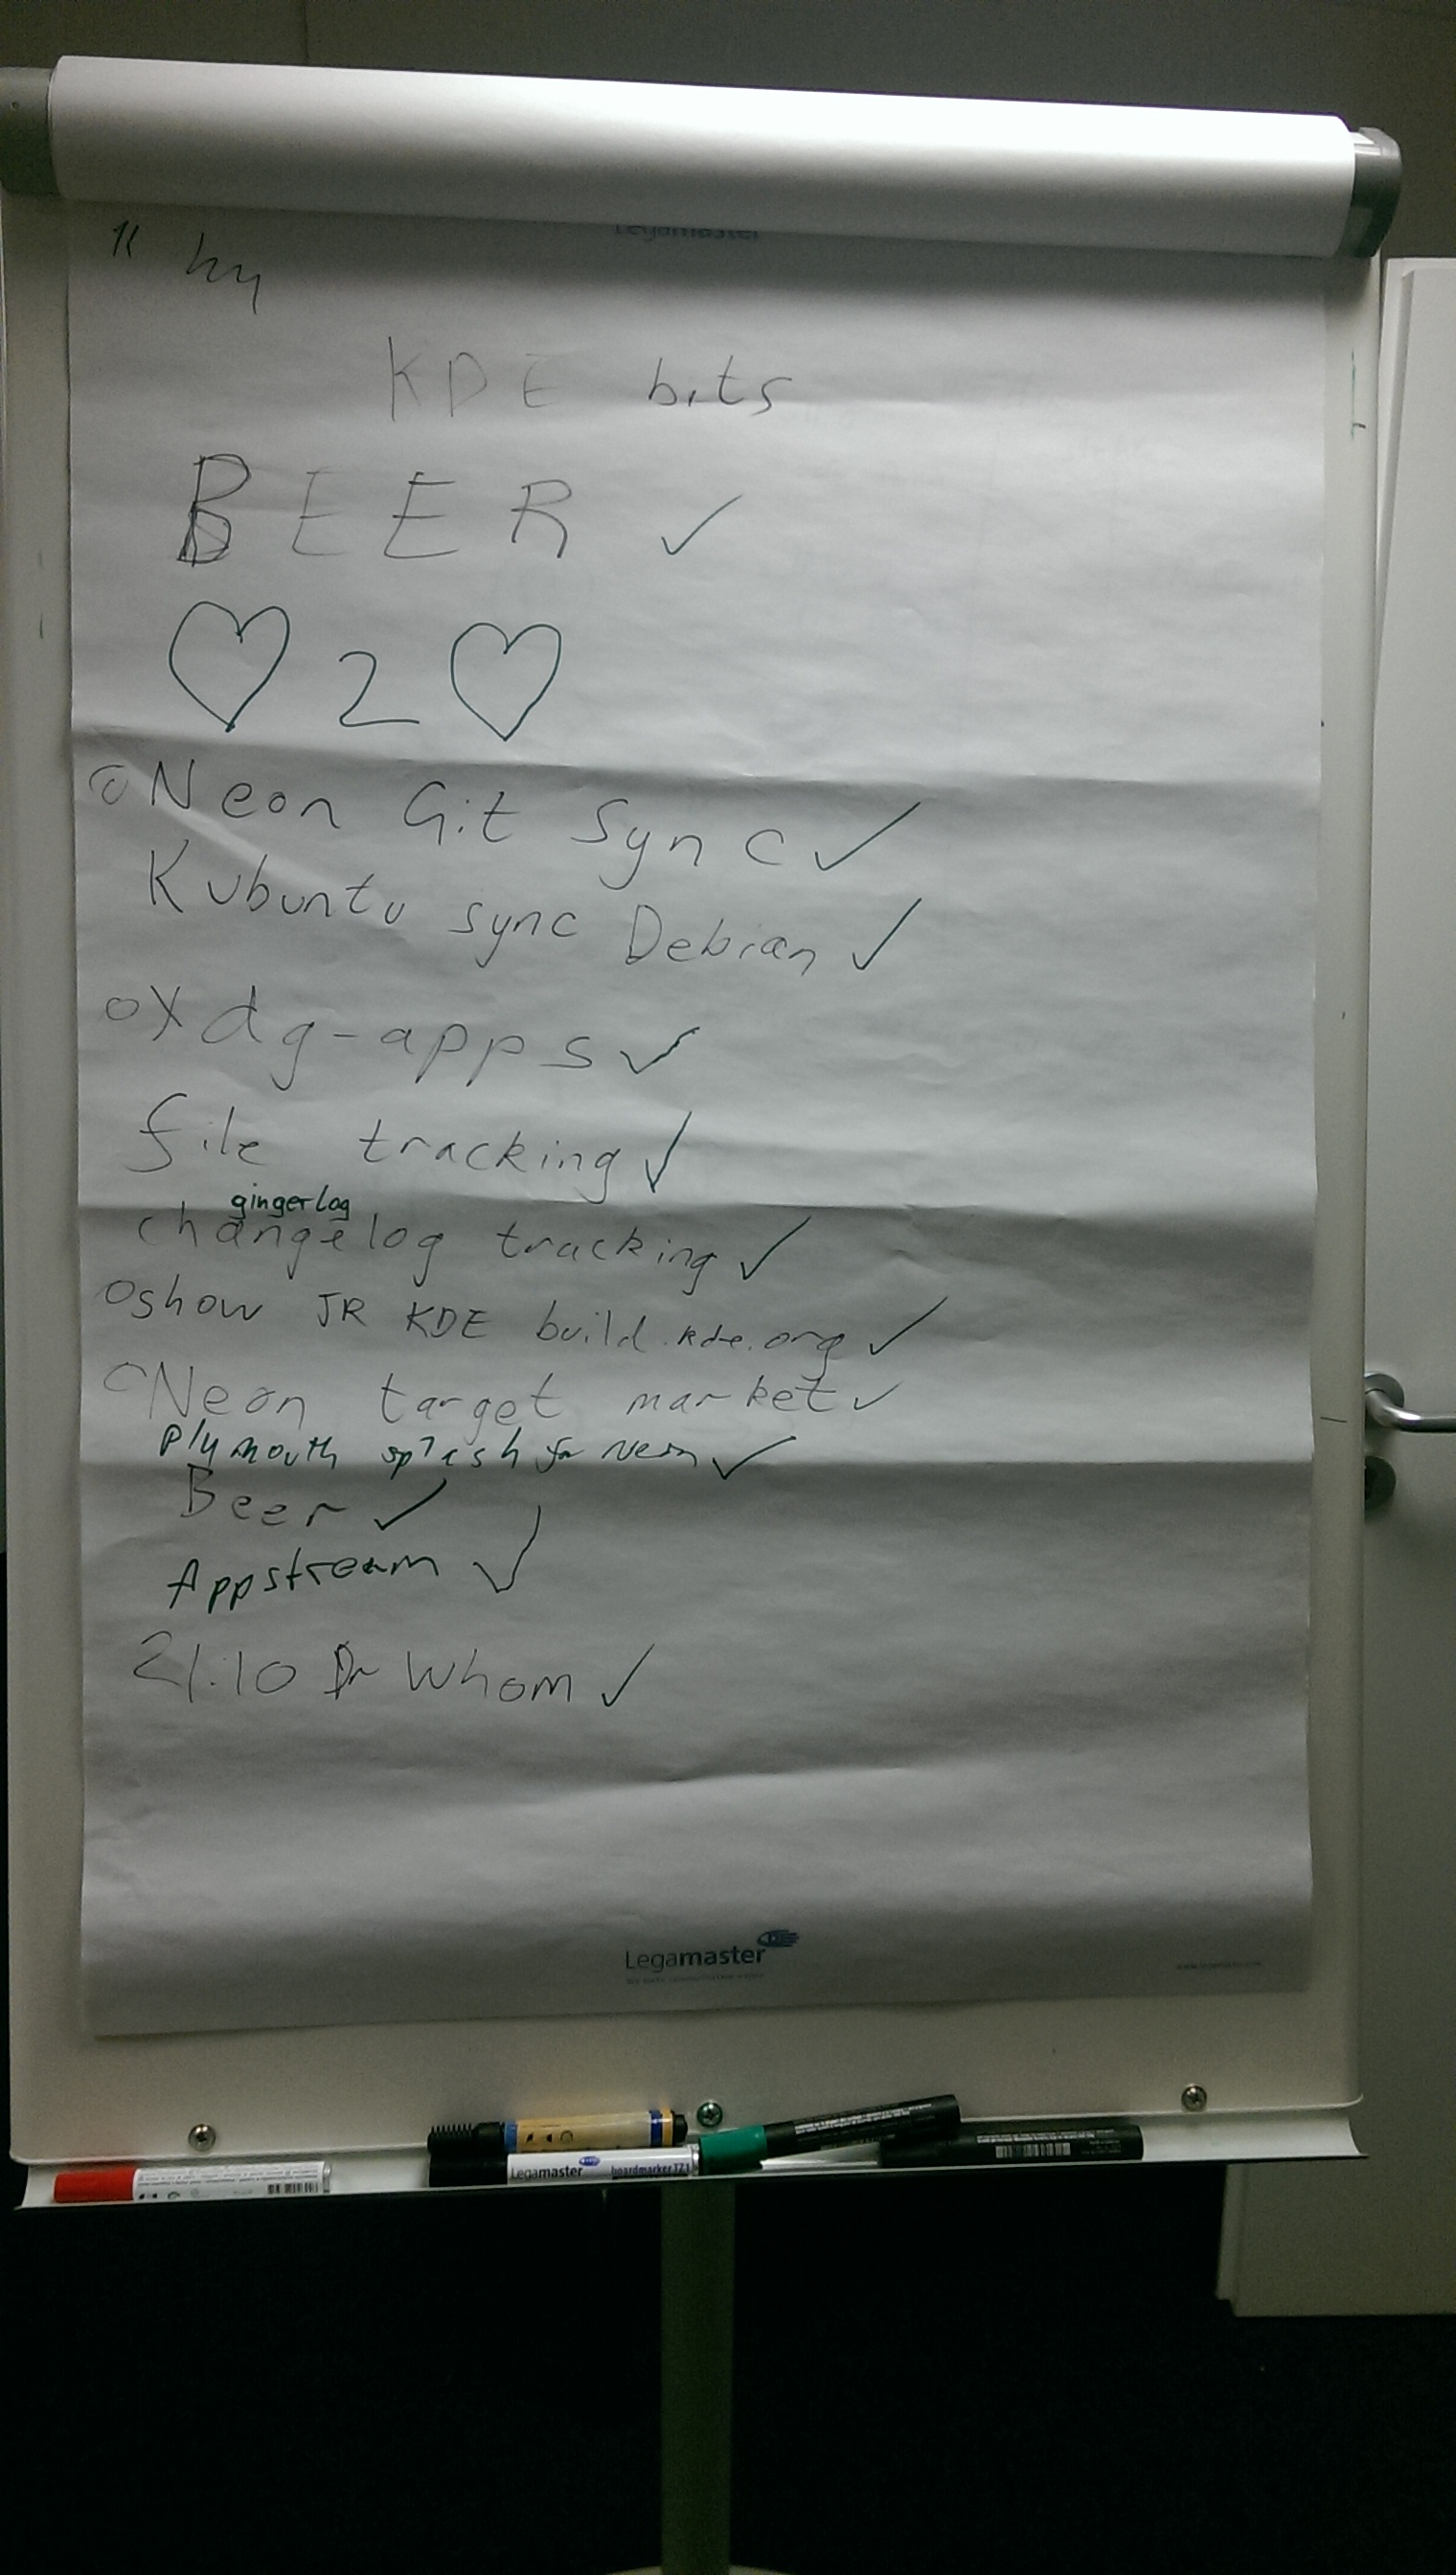 Legamaster
KDE bits
BEER ✓
♡ 2 ♡
Neon Git Sync ✓
Kubuntu sync Debian ✓
Xdg-apps ✓
file tracking ✓
gingerlog
changelog tracking ✓
show JR KDE build.kde.org ✓
Neon target market ✓
Plymouth splash for Neon ✓
Beer ✓
Appstream ✓
21:10 Dr Whom ✓
Legamaster
Legamaster boardmarker TZ1